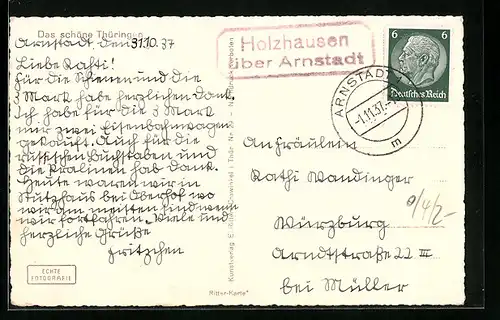 Das schöne Thüringen
Arnstadt, den 31.10.37
Liebe Kathi!
Für die Schienen und die
3 Mark habe herzlichen Dank.
Ich habe für die 3 Mark
mir zwei Eisenbahnwagen
gekauft. Auch für die
russischen Buchstaben und
die Pralinen hab Dank.
Heute waren wir in
Stutzhaus bei Oberhof wo
wir am meisten sind wenn
wir fortfahren. Viele und
herzliche Grüße
Fritzchen
ECHTE
FOTOGRAFIE
Ritter-Karte
Holzhausen
über Arnstadt
6 6
Deutsches Reich
ARNSTADT 1
-1.11.37.
m
An Fräulein
Kathi Wandinger
Würzburg
Arndtstraße 22 III
bei Müller